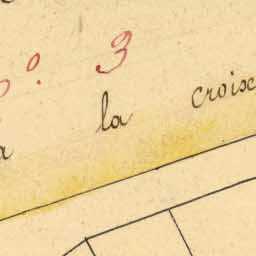 º. 3
la croix